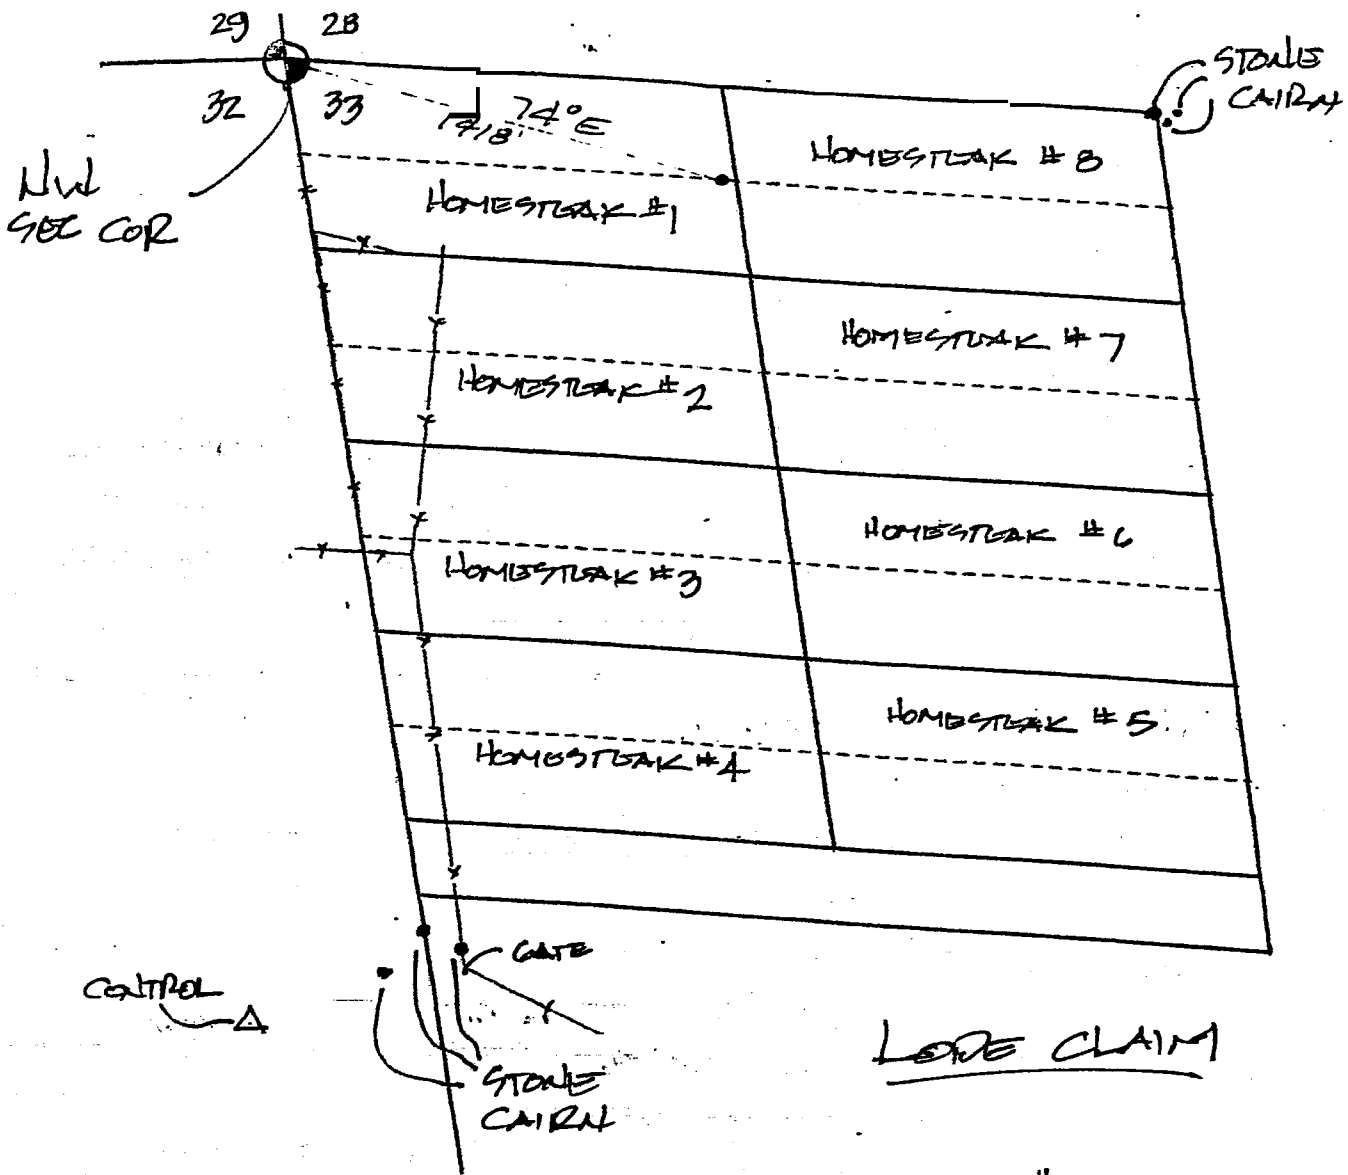 29 28
32 33
NW
SEC COR
74°E
STONE
CAIRN
HOMESTEAK #8
HOMESTEAK #1
HOMESTEAK #7
HOMESTEAK #2
HOMESTEAK #6
HOMESTEAK #3
HOMESTEAK #5
HOMESTEAK #4
GATE
CONTROL
STONE
CAIRN
LODE CLAIM